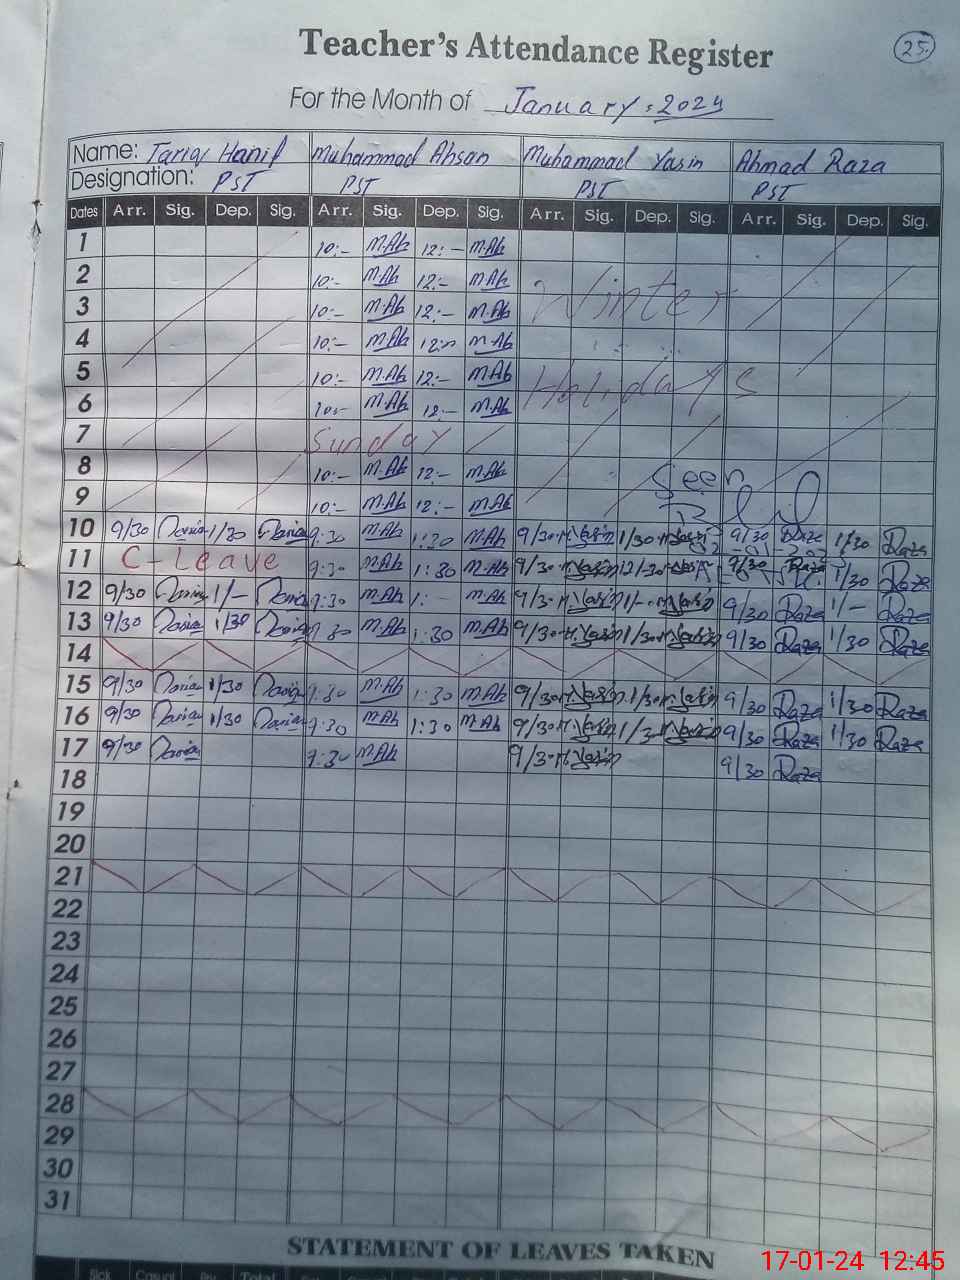 25.
Teacher's Attendance Register
For the Month of January, 2024
Name: Tariq Hanif Muhammad Ahsan Muhammad Yasin Ahmad Raza
Designation: PST PST PST PST
Dates Arr. Sig. Dep. Sig. Arr. Sig. Dep. Sig. Arr. Sig. Dep. Sig. Arr. Sig. Dep. Sig.
1 10:- M.Ah 12:- M.Ah
2 10:- M.Ah 12:- M.Ah
3 10:- M.Ah 12:- M.Ah Winter
4 10:- M.Ah 12:- M.Ah
5 10:- M.Ah 12:- M.Ah Holidays
6 10:- M.Ah 12:- M.Ah
7 Sunday
8 10:- M.Ah 12:- M.Ah Seen
9 10:- M.Ah 12:- M.Ah
10 9/30 1/30 9:30 M.Ah 1:30 M.Ah 9/30 M.Yasin 1/30 M.Yasin 9/30 Raza 1/30 Raza
11 C-Leave 9:30 M.Ah 1:30 M.Ah 9/30 M.Yasin 9/30 Raza 1/30 Raza
12 9/30 1/- 9:30 M.Ah 1:- M.Ah 9/30 M.Yasin 1/- M.Yasin 9/30 Raza 1/- Raza
13 9/30 1/30 9:30 M.Ah 1:30 M.Ah 9/30 M.Yasin 1/30 M.Yasin 9/30 Raza 1/30 Raza
14
15 9/30 1/30 9:30 M.Ah 1:30 M.Ah 9/30 M.Yasin 1/30 M.Yasin 9/30 Raza 1/30 Raza
16 9/30 1/30 9:30 M.Ah 1:30 M.Ah 9/30 M.Yasin 1/30 M.Yasin 9/30 Raza 1/30 Raza
17 9/30 9:30 M.Ah 9/30 M.Yasin 9/30 Raza
18
19
20
21
22
23
24
25
26
27
28
29
30
31
STATEMENT OF LEAVES TAKEN
Sick Casual Total
17-01-24 12:45